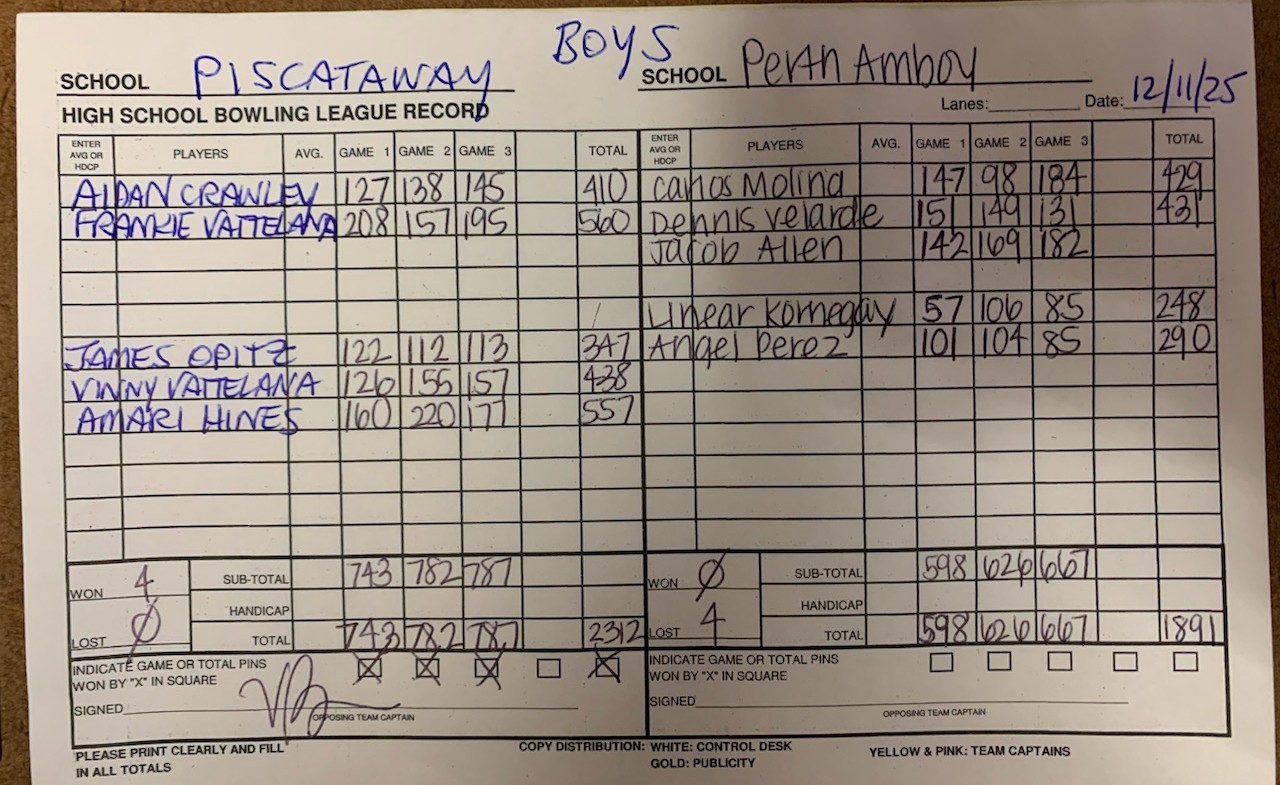 BOYS
SCHOOL PISCATAWAY SCHOOL Perth Amboy
HIGH SCHOOL BOWLING LEAGUE RECORD Lanes: Date: 12/11/25
ENTER AVG OR HDCP PLAYERS AVG. GAME 1 GAME 2 GAME 3 TOTAL ENTER AVG OR HDCP PLAYERS AVG. GAME 1 GAME 2 GAME 3 TOTAL
AIDAN CRAWLEY 127 138 145 410 Carlos Molina 147 98 184 429
FRANKIE VATTELANA 208 157 195 560 Dennis Velarde 151 149 131 431
Jacob Allen 142 169 182
Linear Kornegay 57 106 85 248
JAMES OPITZ 122 112 113 347 Angel Perez 101 104 85 290
VINNY VATTELANA 126 155 157 438
AMARI HINES 160 220 177 557
WON 4 SUB-TOTAL 743 782 787 WON 0 SUB-TOTAL 598 626 667
HANDICAP HANDICAP
LOST 0 TOTAL 743 782 787 2312 LOST 4 TOTAL 598 626 667 1891
INDICATE GAME OR TOTAL PINS INDICATE GAME OR TOTAL PINS
WON BY "X" IN SQUARE X X X X WON BY "X" IN SQUARE
SIGNED SIGNED
OPPOSING TEAM CAPTAIN OPPOSING TEAM CAPTAIN
PLEASE PRINT CLEARLY AND FILL COPY DISTRIBUTION: WHITE: CONTROL DESK YELLOW & PINK: TEAM CAPTAINS
IN ALL TOTALS GOLD: PUBLICITY